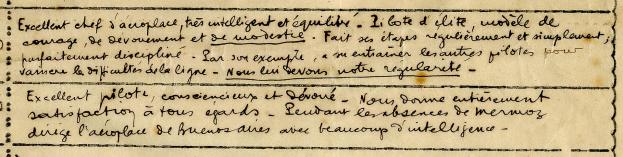 Excellent chef d'aéroplace, très intelligent et équilibré - Pilote d'élite, modèle de
courage, de dévouement et de modestie. Fait ses étapes régulièrement et simplement,
parfaitement discipliné. Par son exemple, a su entraîner les autres pilotes pour
vaincre les difficultés de la ligne - Nous lui devons notre régularité -
Excellent pilote, consciencieux et dévoué - Nous donne entièrement
satisfaction à tous égards - Pendant les absences de Mermoz
dirige l'aéroplace de Buenos aires avec beaucoup d'intelligence -